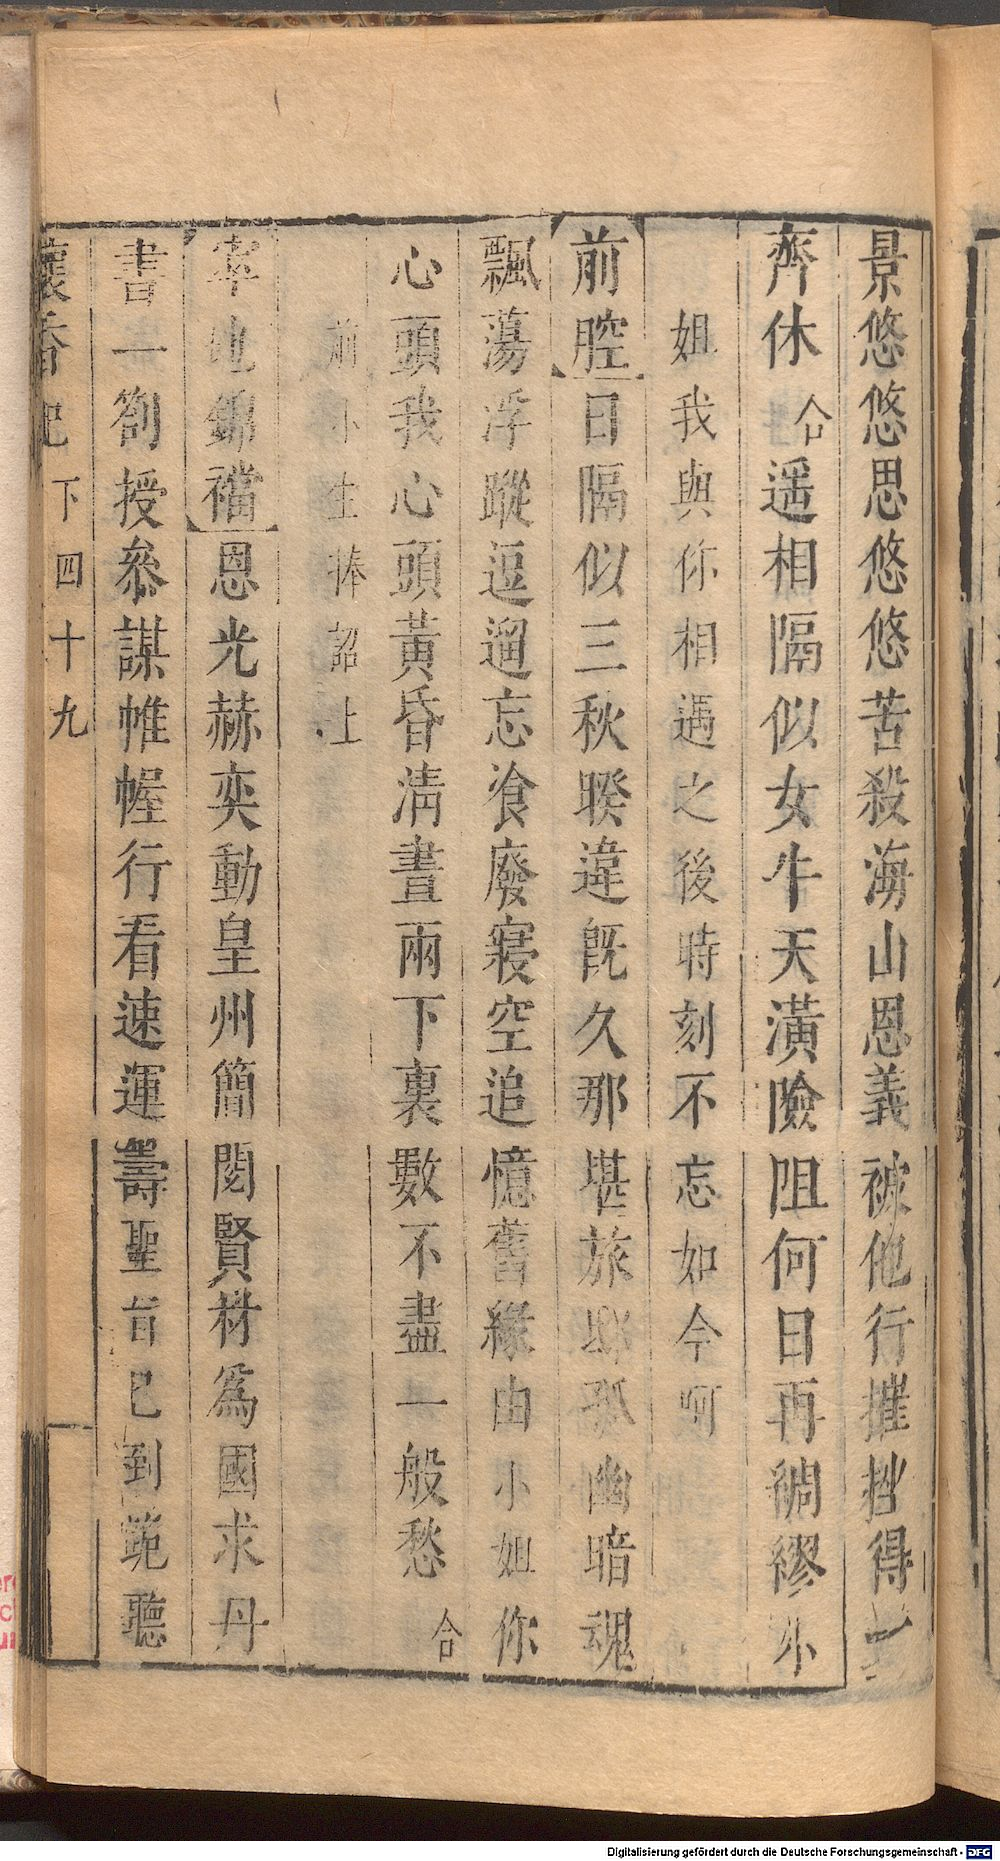 景悠悠思悠悠苦殺海山恩義被他行摧挫得一
齊休 合 遥相隔似女牛天潢險阻何日再綢繆 小
姐我與你相遇之後時刻不忘如今呵
【前腔】日隔似三秋暌違旣久那堪旅邸孤幽暗魂
飄蕩浮蹤逗遛忘飡廢寢空追憶舊緣由 小姐你
心頭我心頭黃昏清晝兩下裏數不盡一般愁 合
前 小生捧詔上
【宰地錦襠】恩光赫奕動皇州簡閱賢材爲國求丹
書一劄授叅謀帷幄行看速運籌聖旨已到 聽
懷香記 下 四十九
Digitalisierung gefördert durch die Deutsche Forschungsgemeinschaft - DFG